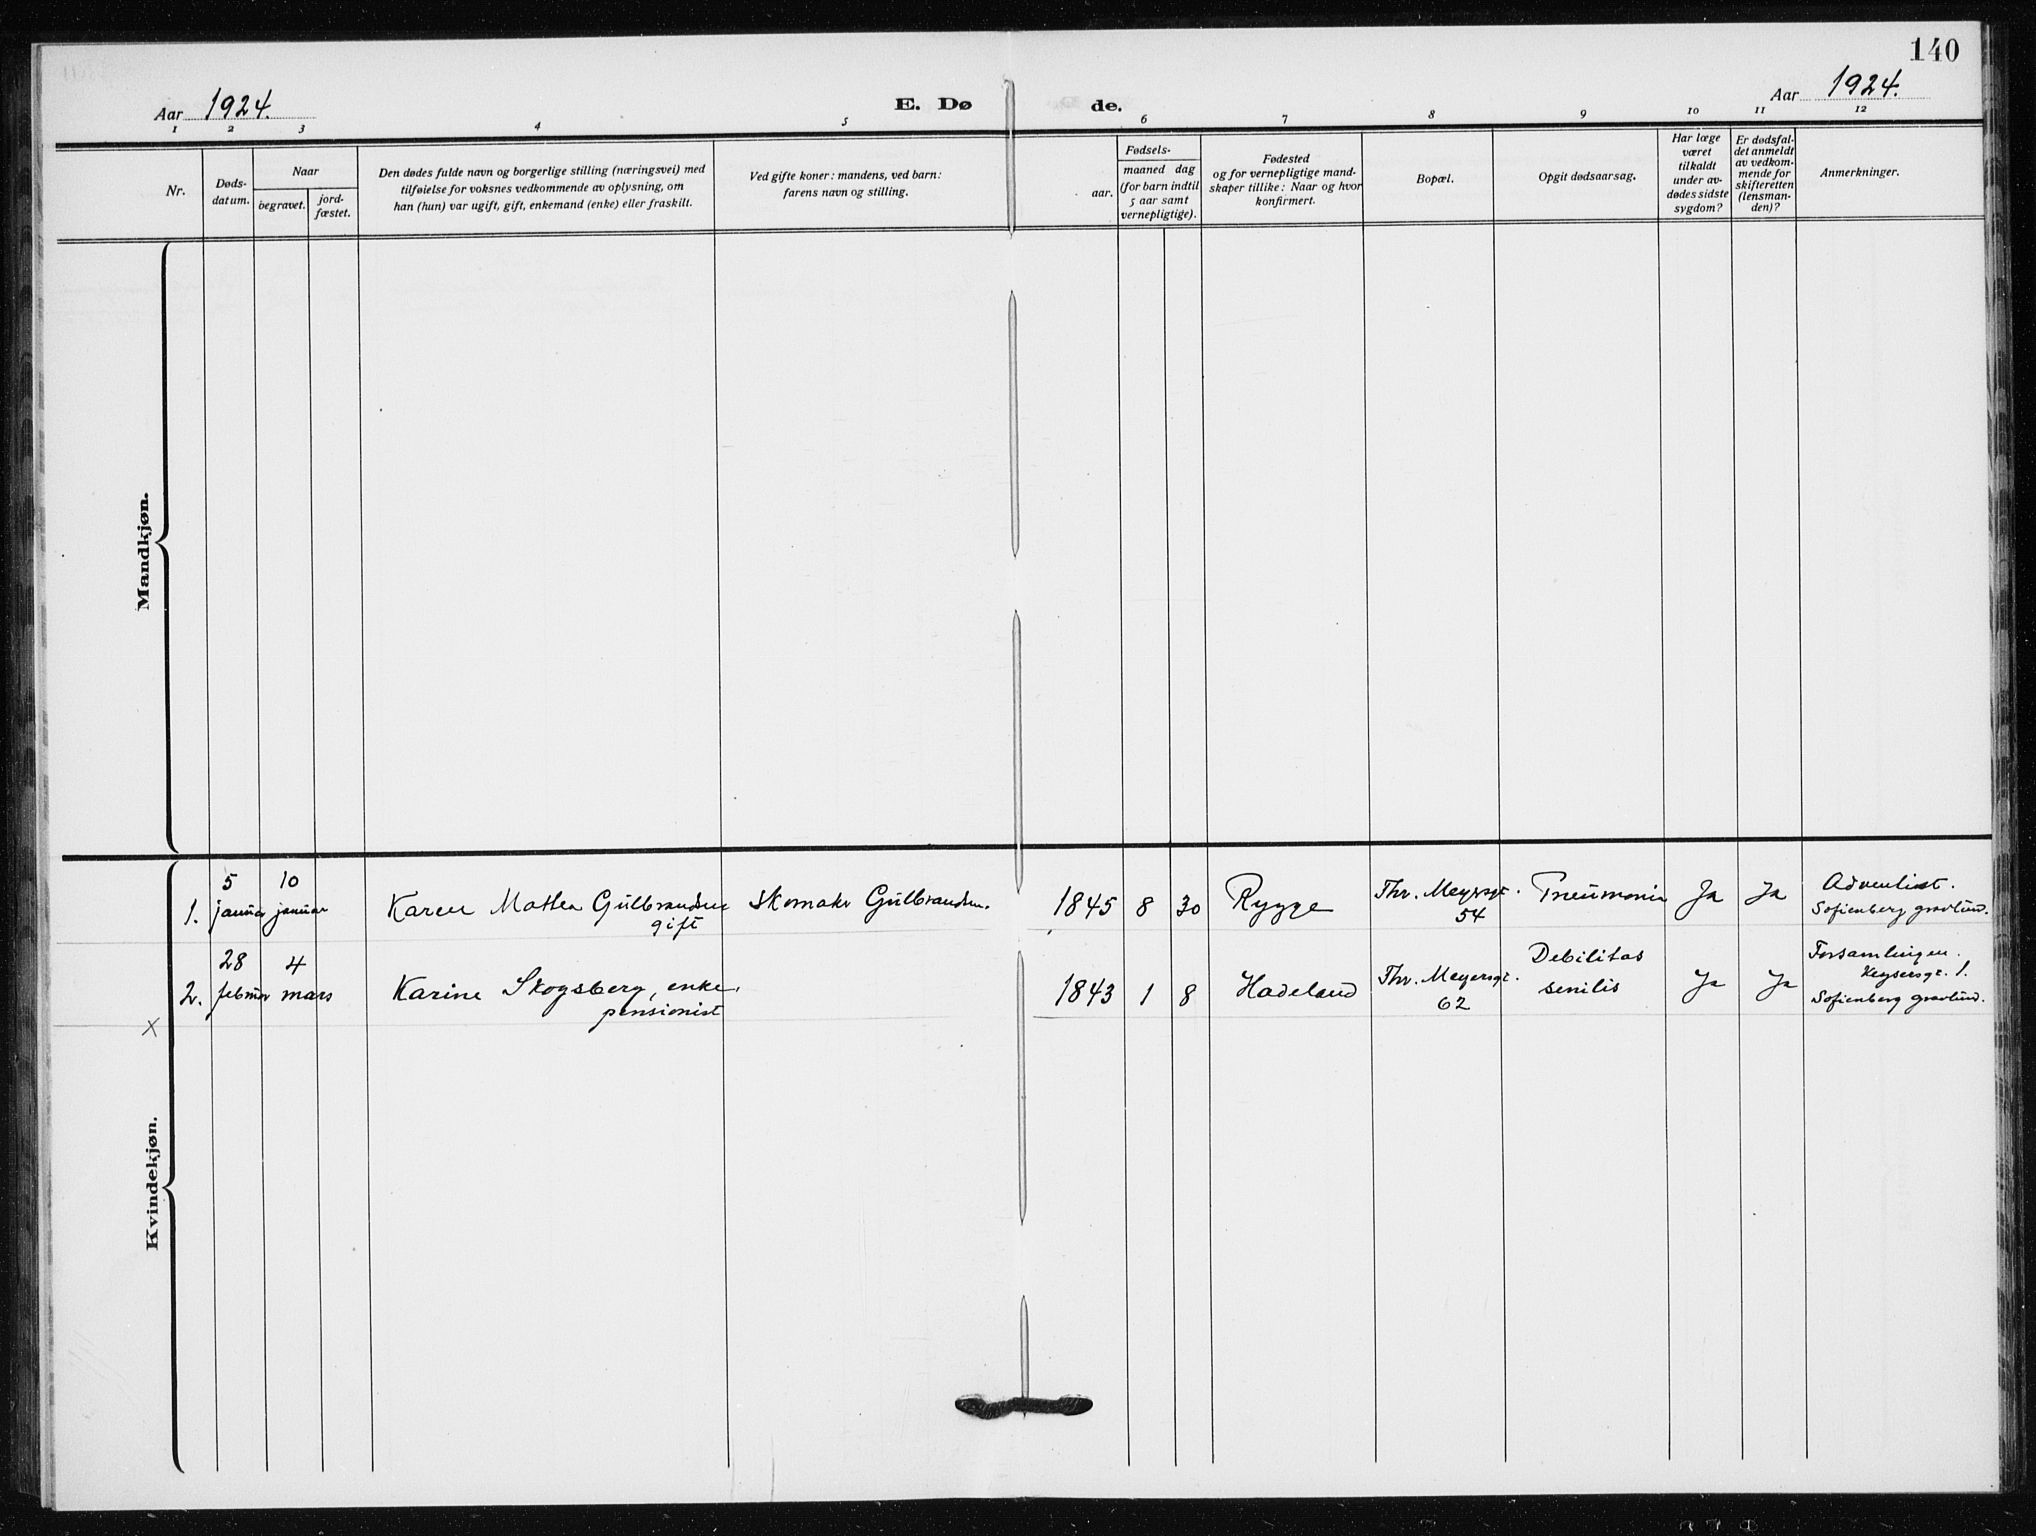 140
Aar 1924. E. Dø de. Aar 1924.
1 2 3 4 5 6 7 8 9 10 11 12
Nr.
Døds-
datum.
Naar
begravet.
jord-
fæstet.
Den dødes fulde navn og borgerlige stilling (næringsvei) med
tilføielse for voksnes vedkommende av oplysning, om
han (hun) var ugift, gift, enkemand (enke) eller fraskilt.
Ved gifte koner: mandens, ved barn:
farens navn og stilling.
Fødsels-
aar.
maaned dag
(for barn indtil
5 aar samt
vernepligtige).
Fødested
og for vernepligtige mand-
skaper tillike: Naar og hvor
konfirmert.
Bopæl.
Opgit dødsaarsag.
Har læge
været
tilkaldt
under av-
dødes sidste
sygdom?
Er dødsfal-
det anmeldt
av vedkom-
mende for
skifteretten
(lensman-
den)?
Anmerkninger.
Mandkjøn.
Kvindekjøn.
1.
5
januar
10
januar
Karen Mathea Gulbrandsen
gift
Skomaker Gulbrandsen.
1845 8 30
Rygge
Thv. Meyersgt.
54
Pneumonia
Ja
Ja
Adventist.
Sofienberg gravlund.
2.
28
februar
4
mars
Karine Skogsberg, enke,
pensionist
1843 1 8
Hadeland
Thv. Meyersgt.
62
Debilitas
senilis
Ja
Ja
Forsamlingen.
Keysersgt. 1.
Sofienberg gravlund.
x